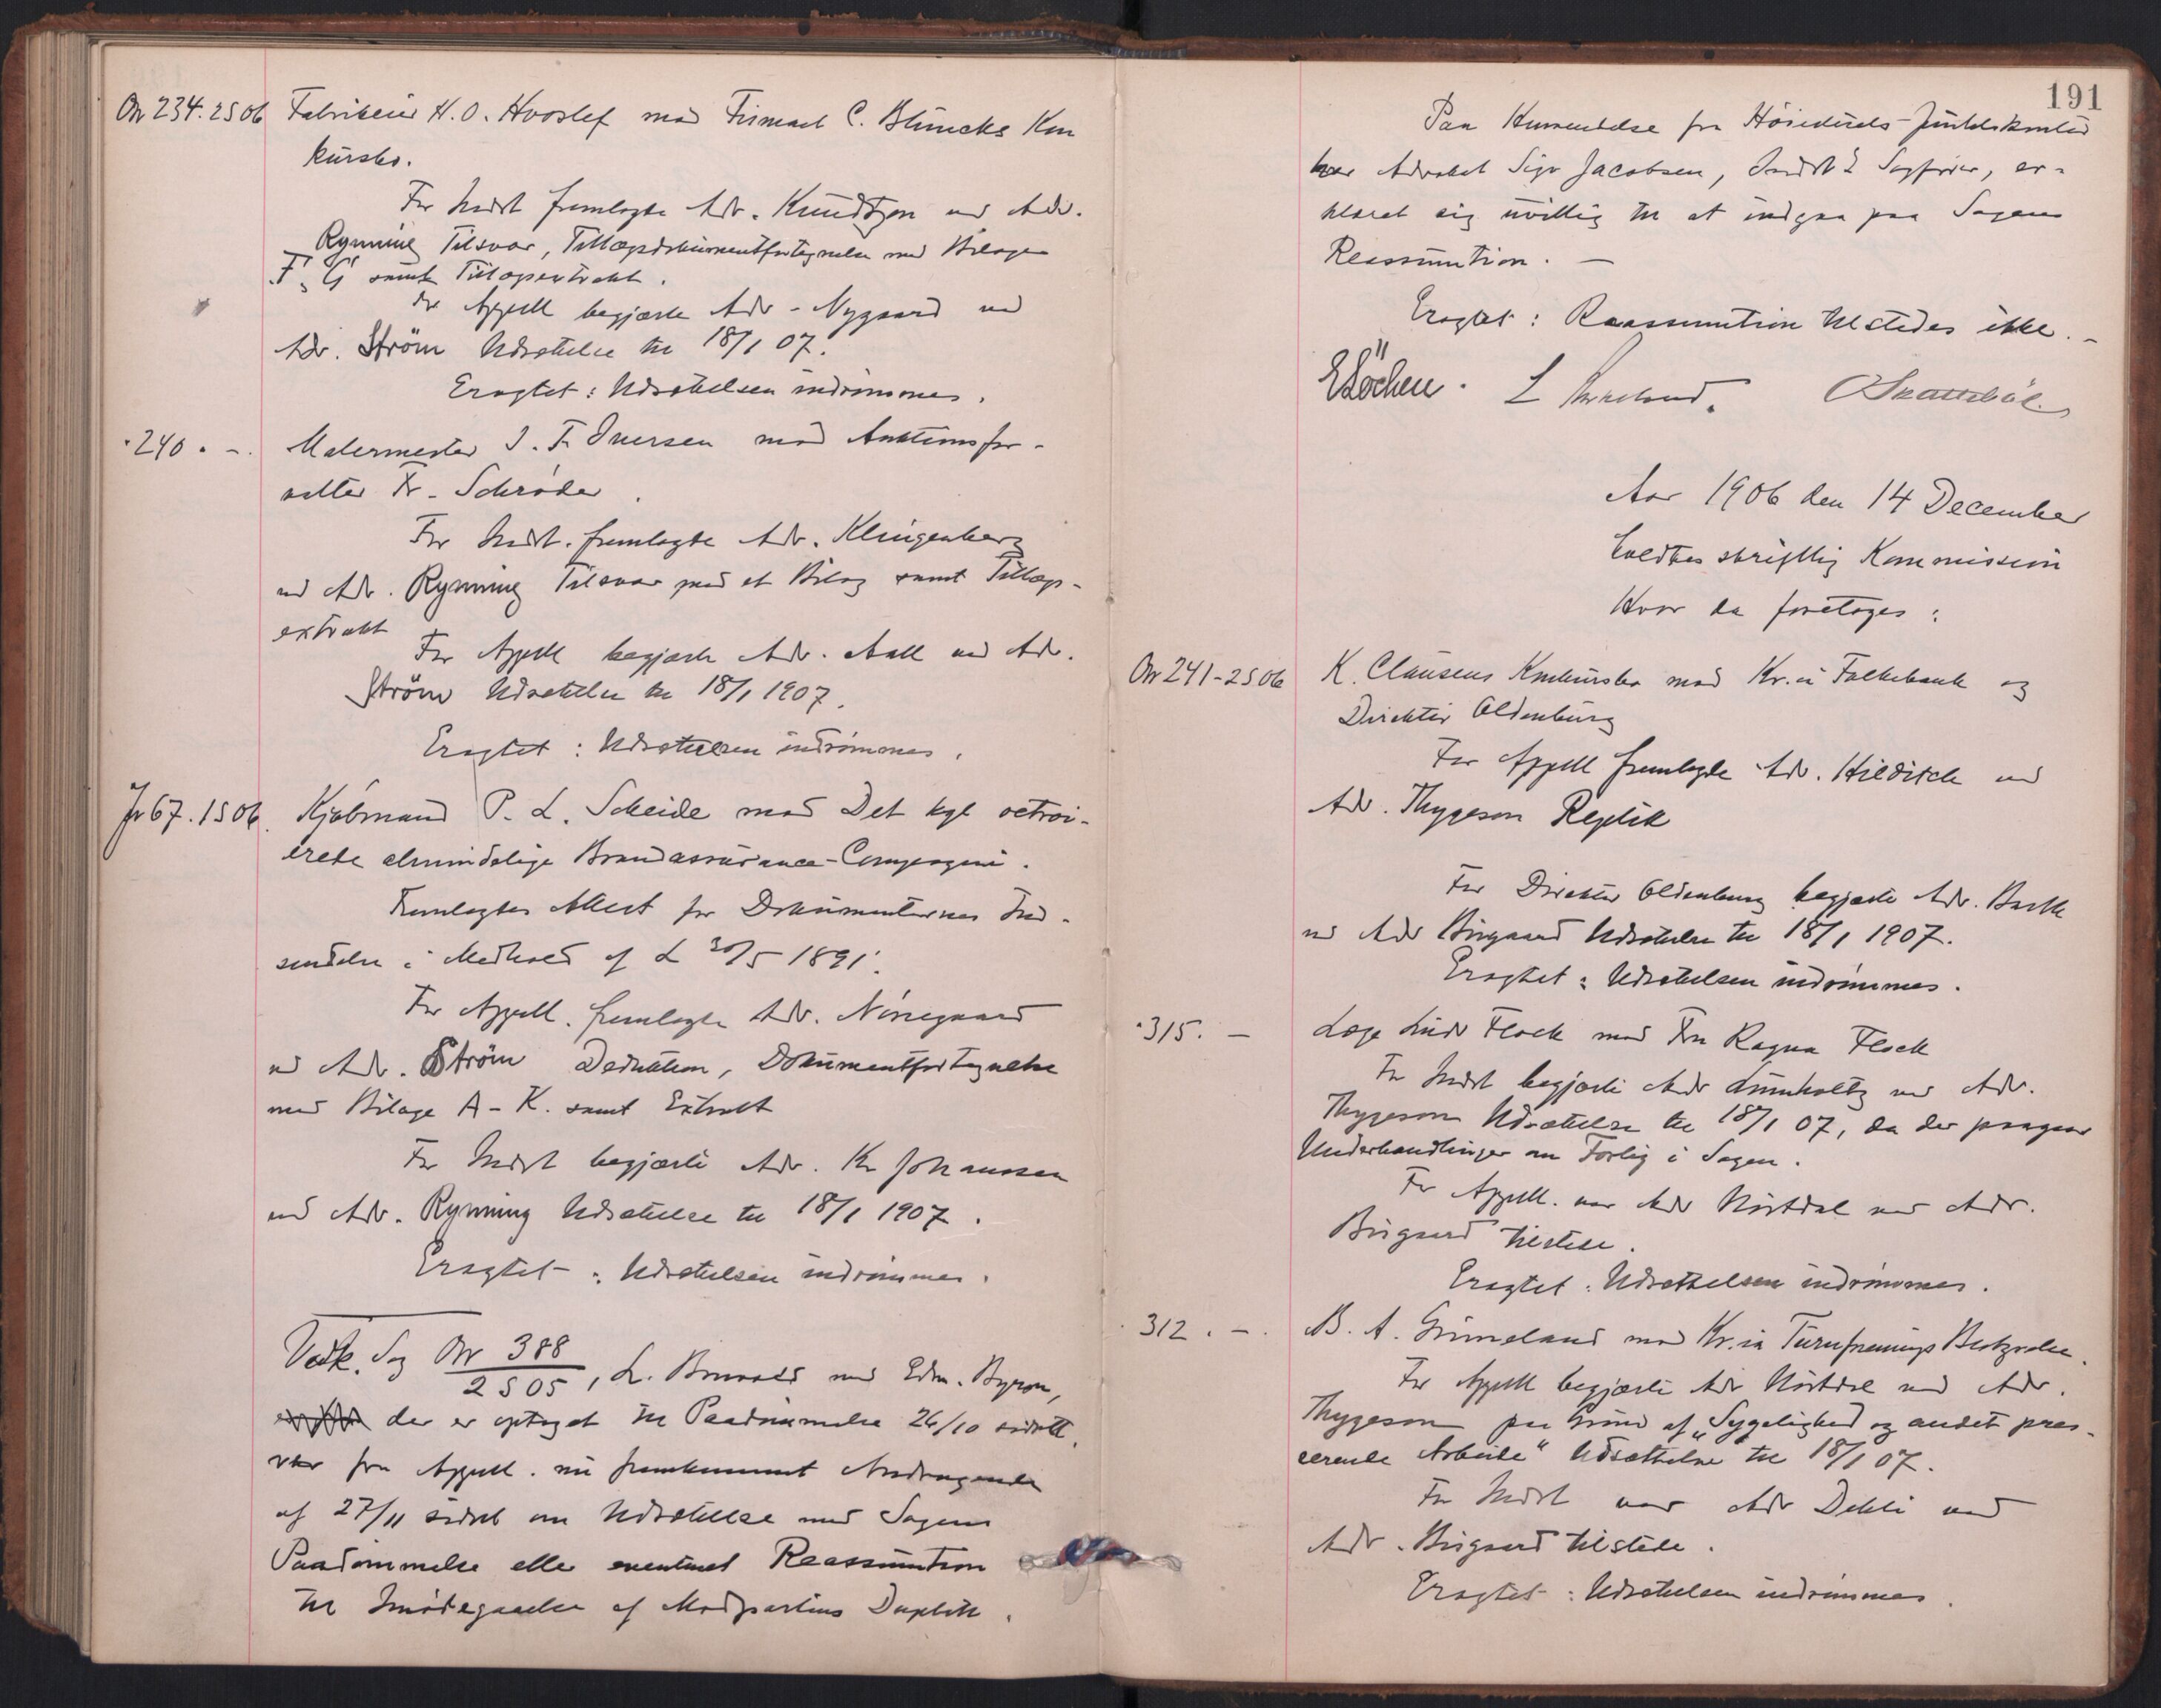 On 234. 2S06 Fabrikeier H. O. Hvoslef mod Firmaet C. Bluncks Kon
kursbo.
For Indst fremlagte Adv. Knudtzon ved Adv.
Rynning Tilsvar, Tillægsdokumentfortegnelse med Bilage
F, G samt Tillægsextrakt.
For Appell begjærte Adv. Nygaard ved
Adv. Ström Udsættelse til 18/1 07.
Eragtet: Udsættelsen indrømmes.
" 240. -. Malermester J. Fr. Iversen mod Auktionsfor-
valter Fr. Schrøder.
For Indst. fremlagte Adv. Klingenberg
ved Adv. Rynning Tilsvar med et Bilag samt Tillægs-
extrakt
For Appell begjærte Adv. Aall ved Adv.
Ström Udsættelse til 18/1 1907.
Eragtet: Udsættelsen indrømmes.
67. 1S06. Kjøbmand P. L. Scheide mod Det kgl octroi-
erede almindelige Brandassurance-Compagni.
Fremlagtes Attest for Dokumenternes Ind-
sendelse i Medhold af L 30/5 1891.
For Appell. fremlagte Adv. Nörregaard
ved Adv. Ström Deduktion, Dokumentfortegnelse
med Bilage A - K. samt Extrakt
For Indst begjærte Adv. Kr Johanssen
ved Adv. Rynning Udsættelse til 18/1 1907.
Eragtet: Udsættelsen indrømmes.
Vedk. Sag On 388
2 S 05, L. mod Edm. Byron,
der er optaget til Paadømmelse 26/10 sidstl.
var fra Appell. nu fremkommet Andragende
af 27/11 sidstl om Udsættelse med Sagens
Paadømmelse eller eventuel Reassumtion
til Imødegaaelse af Modpartens Duplik.
191
Paa Henvendelse fra Høiesterets-Justitskontor
har Advokat Sigv Jacobsen, Indst's Sagfører, er-
klæret sig uvillig til at indgaa paa Sagens
Reassumtion. -
Eragtet: Reassumtion tilstedes ikke. -
Aar 1906 den 14 December
holdtes skriftlig Kommission
Hvor da foretoges:
On 241 - 2S06 K. Clausens Konkursbo mod Kr.ia Folkebank og
Direktør Oldenburg
For Appell fremlagde Adv. Hilditch ved
Adv. Thygeson Replik
For Direktør Oldenburg begjærte Adv. Barth
ved Adv Birgaard Udsættelse til 18/1 1907.
Eragtet: Udsættelsen indrømmes.
" 315. - Læge Flock mod Fru Ragna Flock
For Indst begjærte Adv Lumholtz ved Adv.
Thygeson Udsættelse til 18/1 07, da der paagaar
Underhandlinger om Forlig i Sagen.
For Appell. var Adv Hørtdal ved Adv.
Birgaard tilstede.
Eragtet: Udsættelsen indrømmes.
" 312. -. B. A. Grimeland mod Kr.ia Turnforenings Bestyrelse.
For Appell begjærte Adv Hørtdal ved Adv.
Thygeson paa Grund af „Sygelighed og andet præs-
serende Arbeide" Udsættelse til 18/1 07.
For Indst var Adv Dehli ved
Adv. Birgaard tilstede.
Eragtet: Udsættelsen indrømmes.